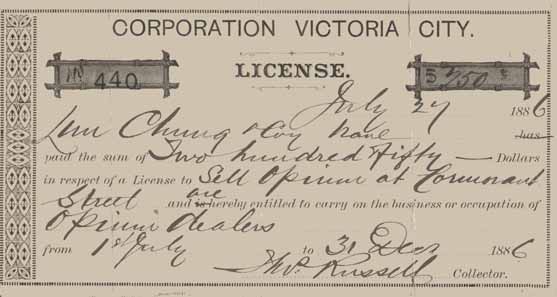 CORPORATION VICTORIA CITY.
No 440
$ 250 $
LICENSE.
July 27 1886
Lum Chung & Coy have has
paid the sum of Two hundred Fifty Dollars
in respect of a License to Sell Opium at Cormorant
Street and are is hereby entitled to carry on the business or occupation of
Opium dealers
from 1st July to 31 Decr 1886
Thos. Russell Collector.